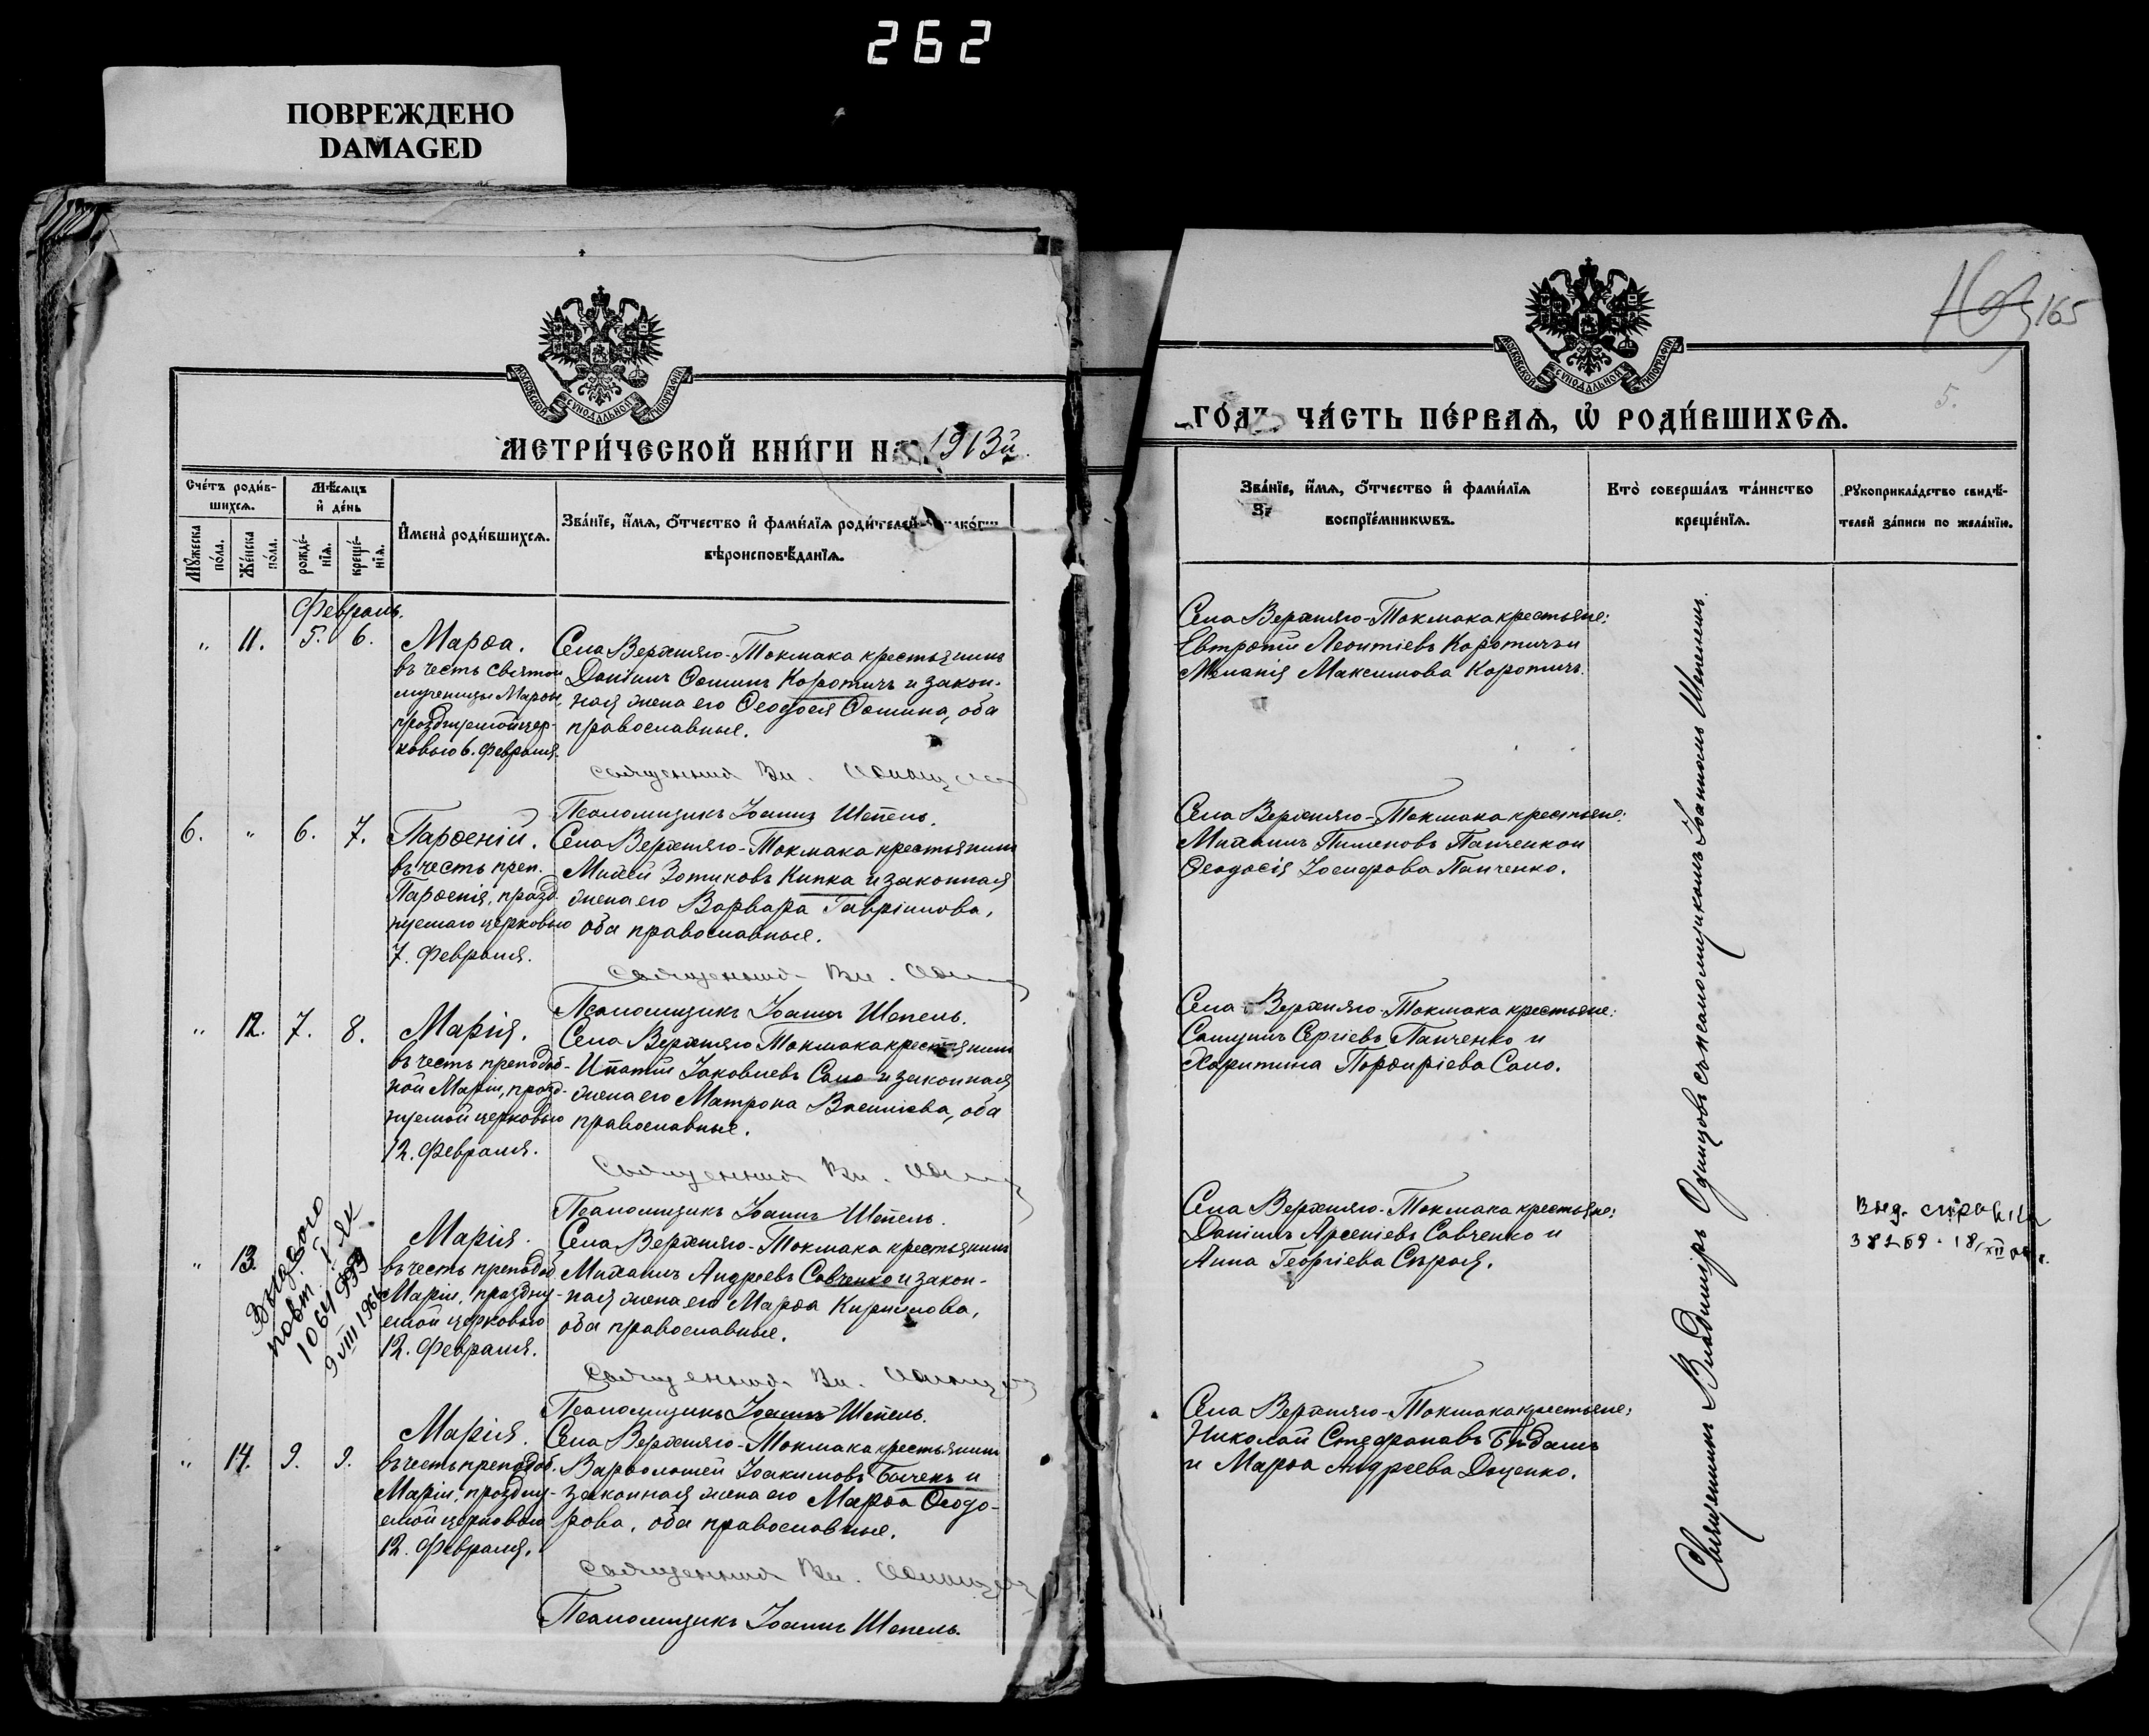 262
ПОВРЕЖДЕНО
DAMAGED
МОСКОВСКОЙ СѴНОДАЛЬНОЙ ТИПОГРАФІИ
МЕТРИ́ЧЕСКОЙ КНИ́ГИ НА 1913й.
Сче́тъ роди́в-
шихсѧ.
Мꙋ́жеска
по́ла.
Же́нска
по́ла.
Мѣ́сѧцъ
и҆ де́нь
рожде́-
нїѧ.
креще́-
нїѧ.
И҆мена̀ роди́вшихсѧ.
Зва́нїе, и҆́мѧ, ѻ҆́тчество и҆ фами́лїѧ роди́телей
вѣроисповѣ́данїѧ.
Февраль.
" 11. 5. 6.
Марѳа.
въ честь святой
мученицы Марѳы,
празднуемой цер-
ковью 6. Февраля.
Села Верхняго-Токмака крестьянинъ
Даніилъ Ѳоминъ Коротичъ и закон-
ная жена его Ѳеодосія Ѳомина, оба
православные.
Священникъ Вл.
Псаломщикъ Іоаннъ Шепель.
6. " 6. 7.
Парѳеній.
въ честь преп.
Парѳенія, празд-
нуемаго церковью
7. Февраля.
Села Верхняго-Токмака крестьянинъ
Михей Зотиковъ Кипка и законная
жена его Варвара Гавріилова,
оба православные.
Священникъ Вл.
Псаломщикъ Іоаннъ Шепель.
" 12. 7. 8.
Марія.
въ честь преподоб-
ной Маріи, празд-
нуемой церковью
12. Февраля.
Села Верхняго Токмака крестьянинъ
Игнатій Іаковлевъ Сало и законная
жена его Матрона Василіева, оба
православные.
Священникъ Вл.
Псаломщикъ Іоаннъ Шепель.
" 13.
Видано
повт. I ЯК
9 VIII 1966
Марія.
въ честь преподоб.
Маріи, праздну-
емой церковью
12. Февраля.
Села Верхняго-Токмака крестьянинъ
Михаилъ Андреевъ Савченко и закон-
ная жена его Марѳа Кириллова,
оба православные.
Священникъ Вл.
Псаломщикъ Іоаннъ Шепель.
" 14. 9. 9.
Марія.
въ честь преподоб.
Маріи, праздну-
емой церковью
12. Февраля.
Села Верхняго-Токмака крестьянинъ
Варѳоломей Іоакимовъ Бычекъ и
законная жена его Марѳа Ѳеодо-
рова, оба православные.
Священникъ Вл.
Псаломщикъ Іоаннъ Шепель.
165
5.
МОСКОВСКОЙ СѴНОДАЛЬНОЙ ТИПОГРАФІИ
ГО́ДЪ, ЧА́СТЬ ПЕ́РВАѦ, Ѽ РОДИ́ВШИХСѦ.
Зва́нїе, и҆́мѧ, ѻ҆́тчество и҆ фами́лїѧ
воспрїе́мникѡвъ.
Кто̀ соверша́лъ та́инство
креще́нїѧ.
Рꙋкоприкла́дство свидѣ́-
телей за́писи по жела́нїю.
Села Верхняго-Токмака крестьяне:
Евтропій Леонтіевъ Коротичъ и
Меланія Максимова Коротичъ.
Села Верхняго-Токмака крестьяне:
Михаилъ Пименовъ Панченко и
Ѳеодосія Іосифова Панченко.
Села Верхняго-Токмака крестьяне:
Самуилъ Сергіевъ Панченко и
Харитина Порфиріева Сало.
Села Верхняго-Токмака крестьяне:
Даніилъ Арсеніевъ Савченко и
Анна Георгіева Сѣрая.
Села Верхняго-Токмака крестьяне:
Николай Стефановъ Бѣдашъ
и Марѳа Андреева Доценко.
Священникъ Владиміръ Одинцовъ съ псаломщикомъ Іоанномъ Шепелемъ.